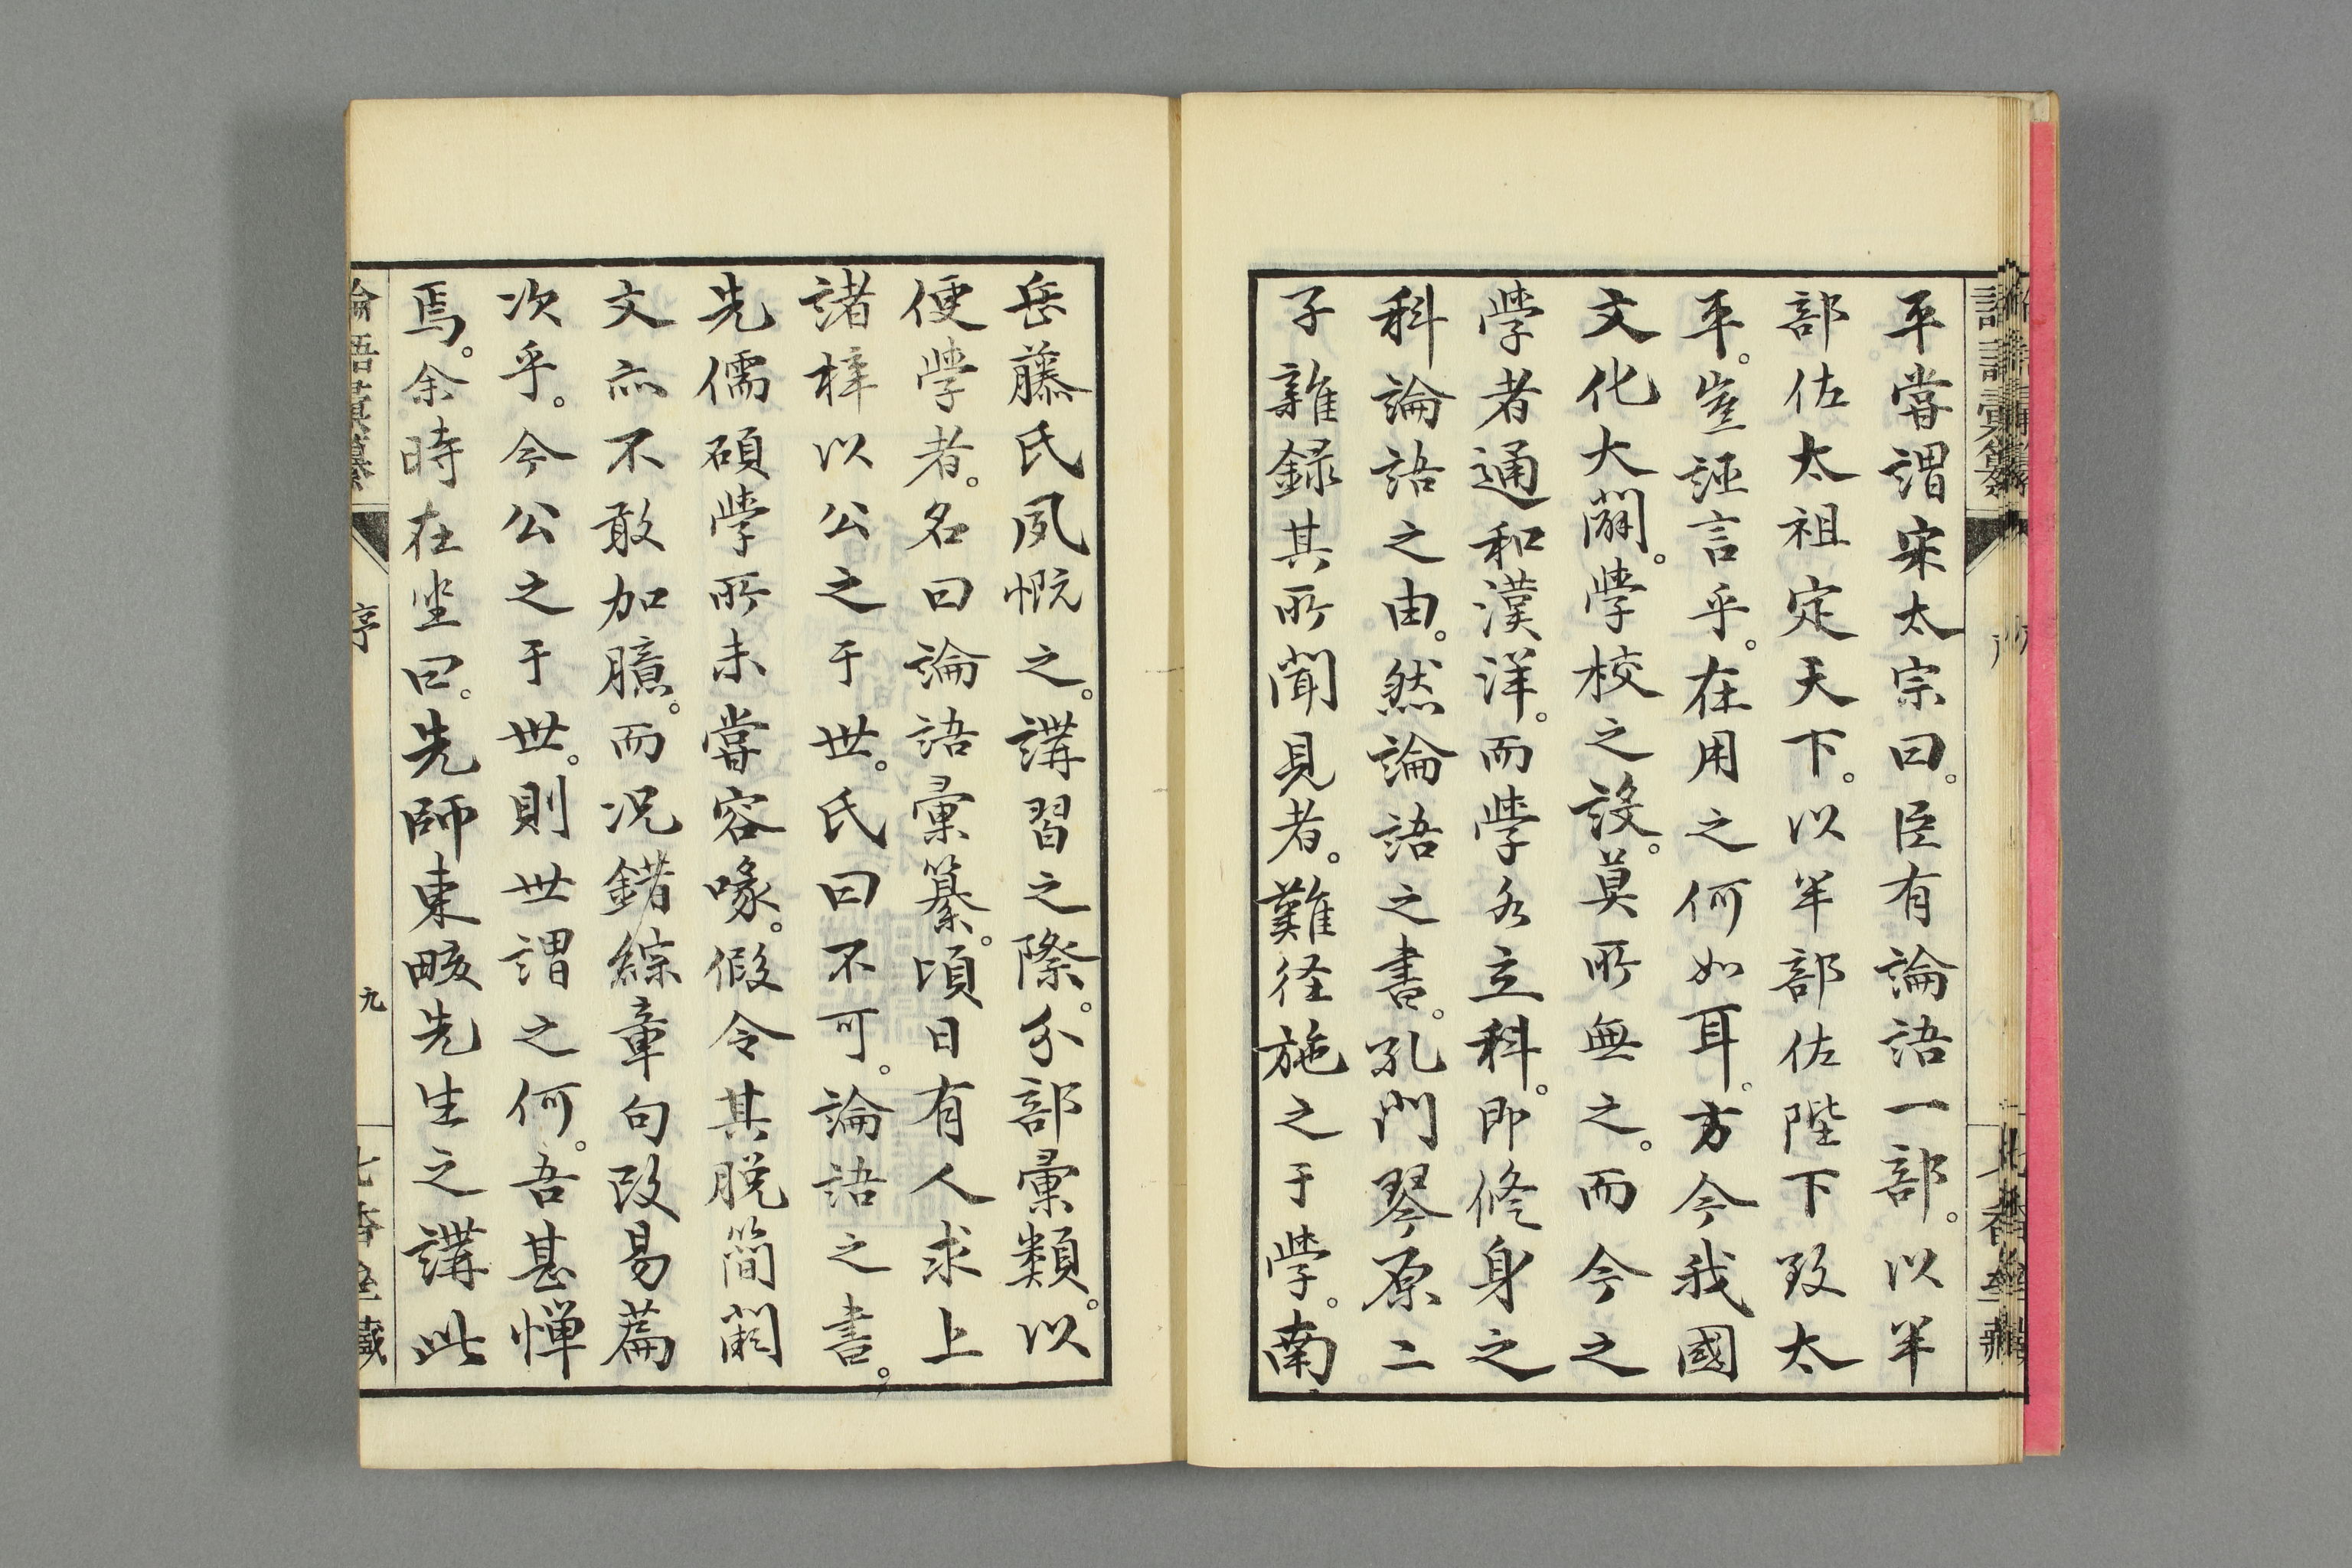 平嘗謂宋太宗曰。臣有論語一部。以半
部佐太祖定天下。以半部佐陛下致太
平。豈誣言乎。在用之何如耳。方今我國
文化大闢。學校之設。莫所無之。而今之
學者通和漢洋。而學各立科。即修身之
科論語之由。然論語之書。孔門琴原二
子雜録其所聞見者。難径施之于学。南
岳藤氏夙慨之。講習之際。分部彙類。以
便學者。名曰論語彙纂。頃日有人求上
諸梓以公之于世。氏曰不可。論語之書。
先儒碩學所未嘗容喙。假令其脱簡闕
文亦不敢加臆。而况錯綜章句改易篇
次乎。今公之于世。則世謂之何。吾甚憚
焉。余時在坐曰。先師東畡先生之講此
論語彙纂
序
九
七香堂藏